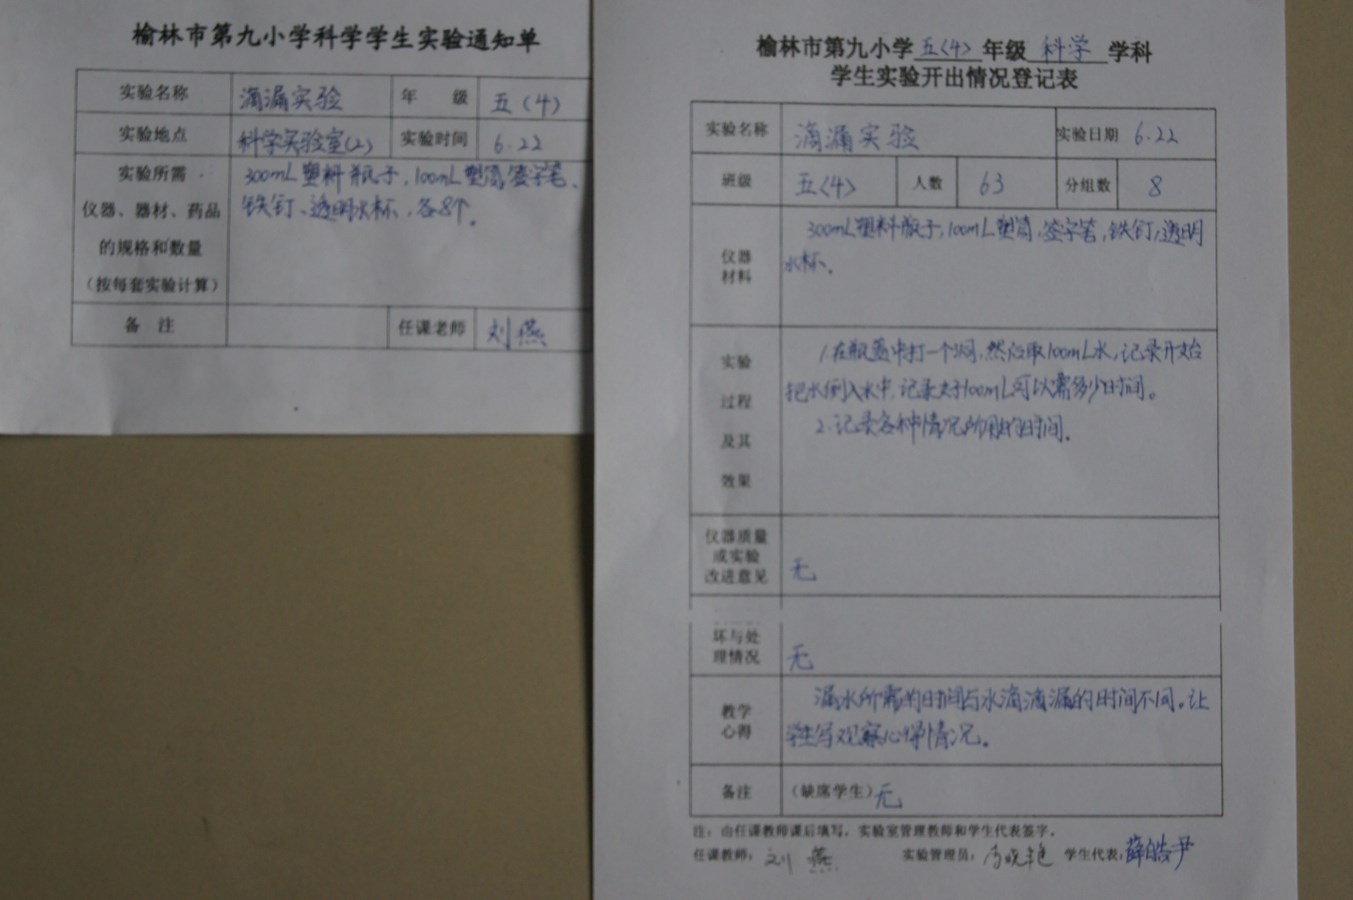 榆林市第九小学科学学生实验通知单
实验名称 滴漏实验 年 级 五（4）
实验地点 科学实验室(2) 实验时间 6.22
实验所需
仪器、器材、药品
的规格和数量
（按每套实验计算）
300mL塑料瓶子，100mL塑筒，签字笔、
铁钉、透明水杯，各8个。
备 注 任课老师 刘燕
榆林市第九小学五〈4〉年级 科学 学科
学生实验开出情况登记表
实验名称 滴漏实验 实验日期 6.22
班级 五〈4〉 人数 63 分组数 8
仪器
材料
300mL塑料瓶子，100mL塑筒，签字笔，铁钉，透明
水杯。
实验
过程
及其
效果
1.在瓶盖中打一个洞，然后取100mL水，记录开始
把水倒入水中，记录 100mL可以需多少时间。
2.记录各种情况所用的时间。
仪器质量
或实验
改进意见
无
坏与处
理情况
无
教学
心得
漏水所需的时间与水滴滴漏的时间不同。让
学生写观察心得情况。
备注 （缺席学生）无
注：由任课教师课后填写，实验室管理教师和学生代表签字。
任课教师：刘燕 实验管理员： 学生代表：薛皓尹